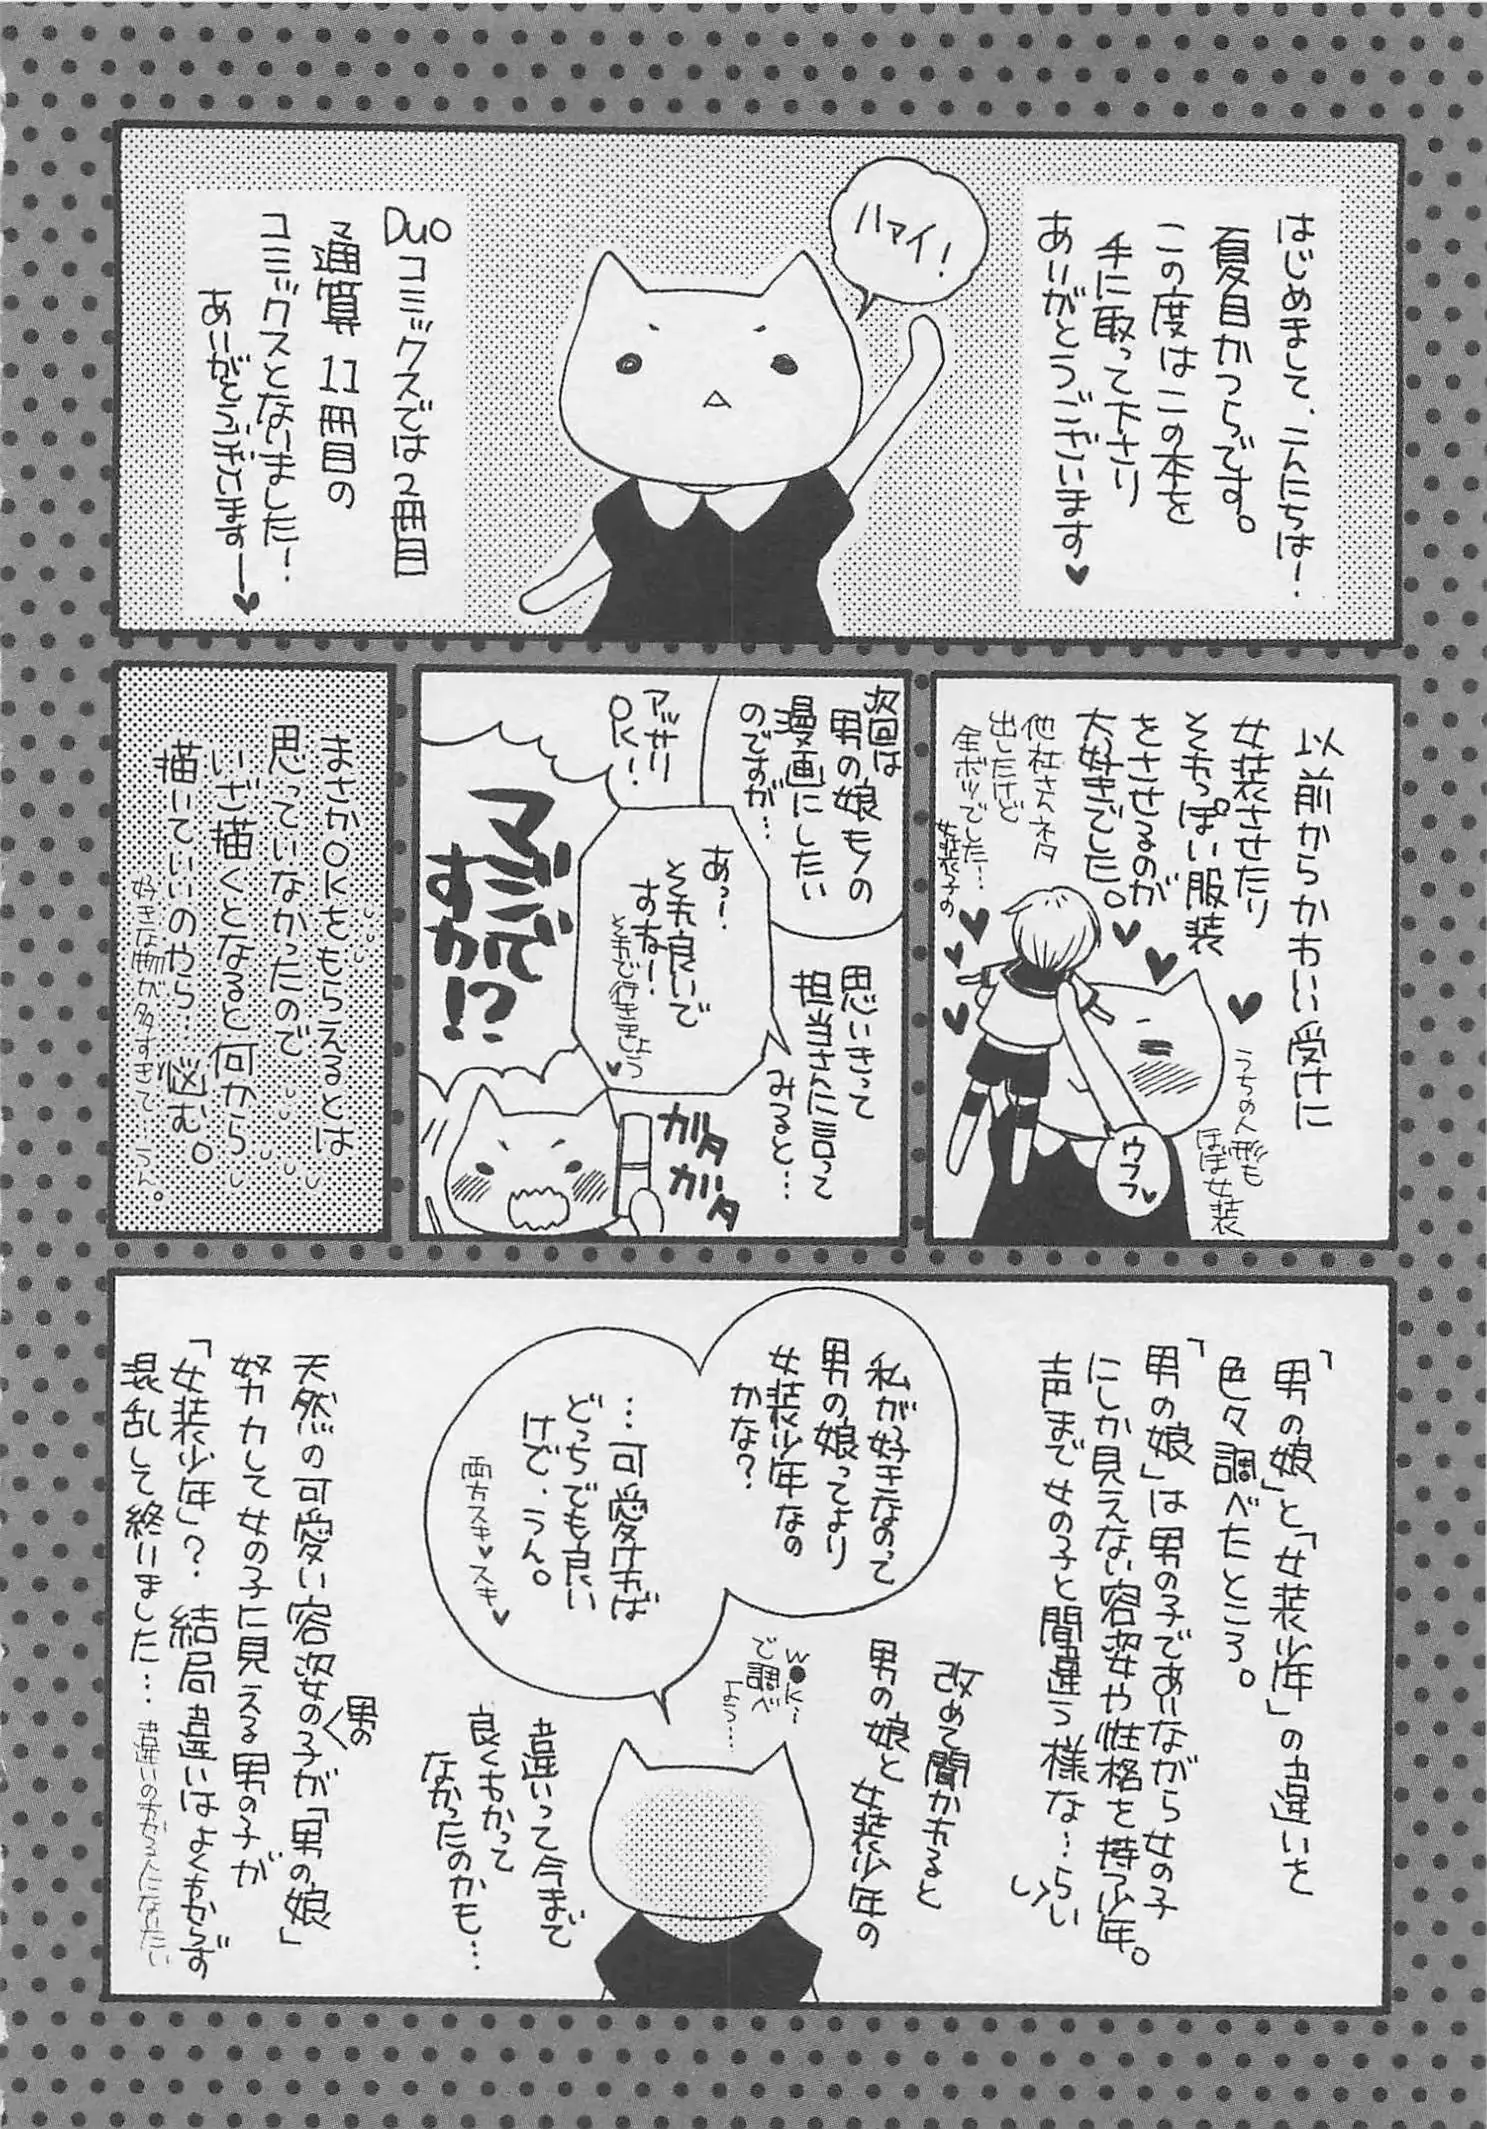 はじめまして、こんにちは!
夏目かつらです。
この度はこの本を
手に取って下さり
ありがとうございます♥
ハァイ!
Duoコミックスでは2冊目
通算11冊目の
コミックスとなりました!
ありがとうございますー♥
以前からかわいい受けに
女装させたり
それっぽい服装
をさせるのが
大好きでした。
他社さんネタ
出したけど
全ボツでした…
女装子の
うちの人形も
ほぼ女装
ウフフ♥
次回は
男の娘モノの
漫画にしたい
のですが…
思いきって
担当さんに言って
みると…
あっ!
それ良いで
すね!
それで行きましょう♥
アッサリ
OK!
マジで
すか!?
ガタ
ガタ
まさかOKをもらえるとは
思っていなかったので
いざ描くとなると何から
描いていいのやら…悩む。
好きな物が多すぎて…うん。
「男の娘」と「女装少年」の違いを
色々調べたところ。
「男の娘」は男の子でありながら女の子
にしか見えない容姿や性格を持つ少年。
声まで女の子と間違う様な…らしい
私が好きなのって
男の娘ってより
女装少年なの
かな?
…可愛ければ
どっちでも良い
けど、うん。
両方スキ♥スキ♥
改めて聞かれると
男の娘と女装少年の
違いって今まで
良くわかって
なかったのかも…
で調べ
よう…
天然の可愛い容姿の男の子が「男の娘」
努力して女の子に見える男の子が
「女装少年」?結局違いはよくわからず
混乱して終りました…
違いのわかる人になりたい